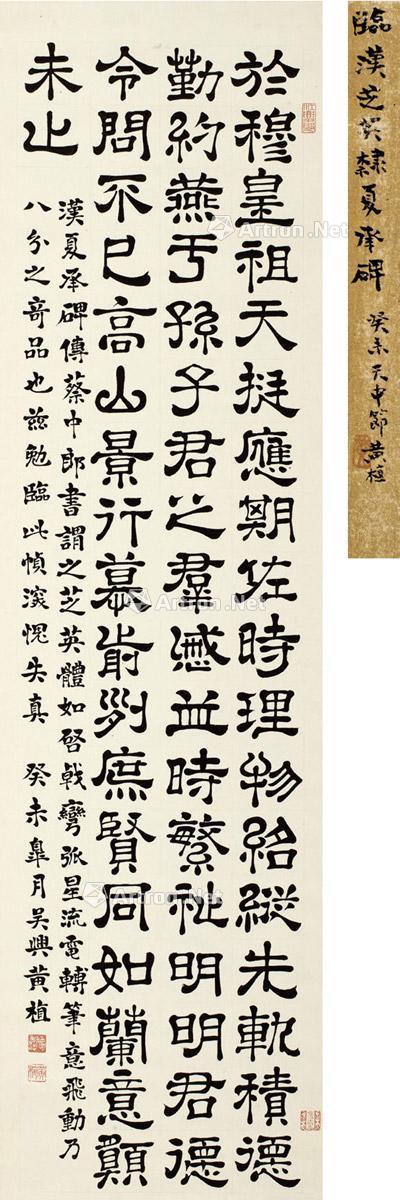 臨漢芝英隸夏承碑 癸未天中節黃植
於穆皇祖天挺應期佐時理物紹縱先軌積德
勤約燕于孫子君之羣慼並時繁祉明明君德
令問不已高山景行慕前列庶賢同如蘭意願
未止
漢夏承碑傳蔡中郎書謂之芝英體如啓戟彎弧星流電轉筆意飛動乃
八分之奇品也茲勉臨此幀深愧失真 癸未皋月吳興黃植
Artron.Net